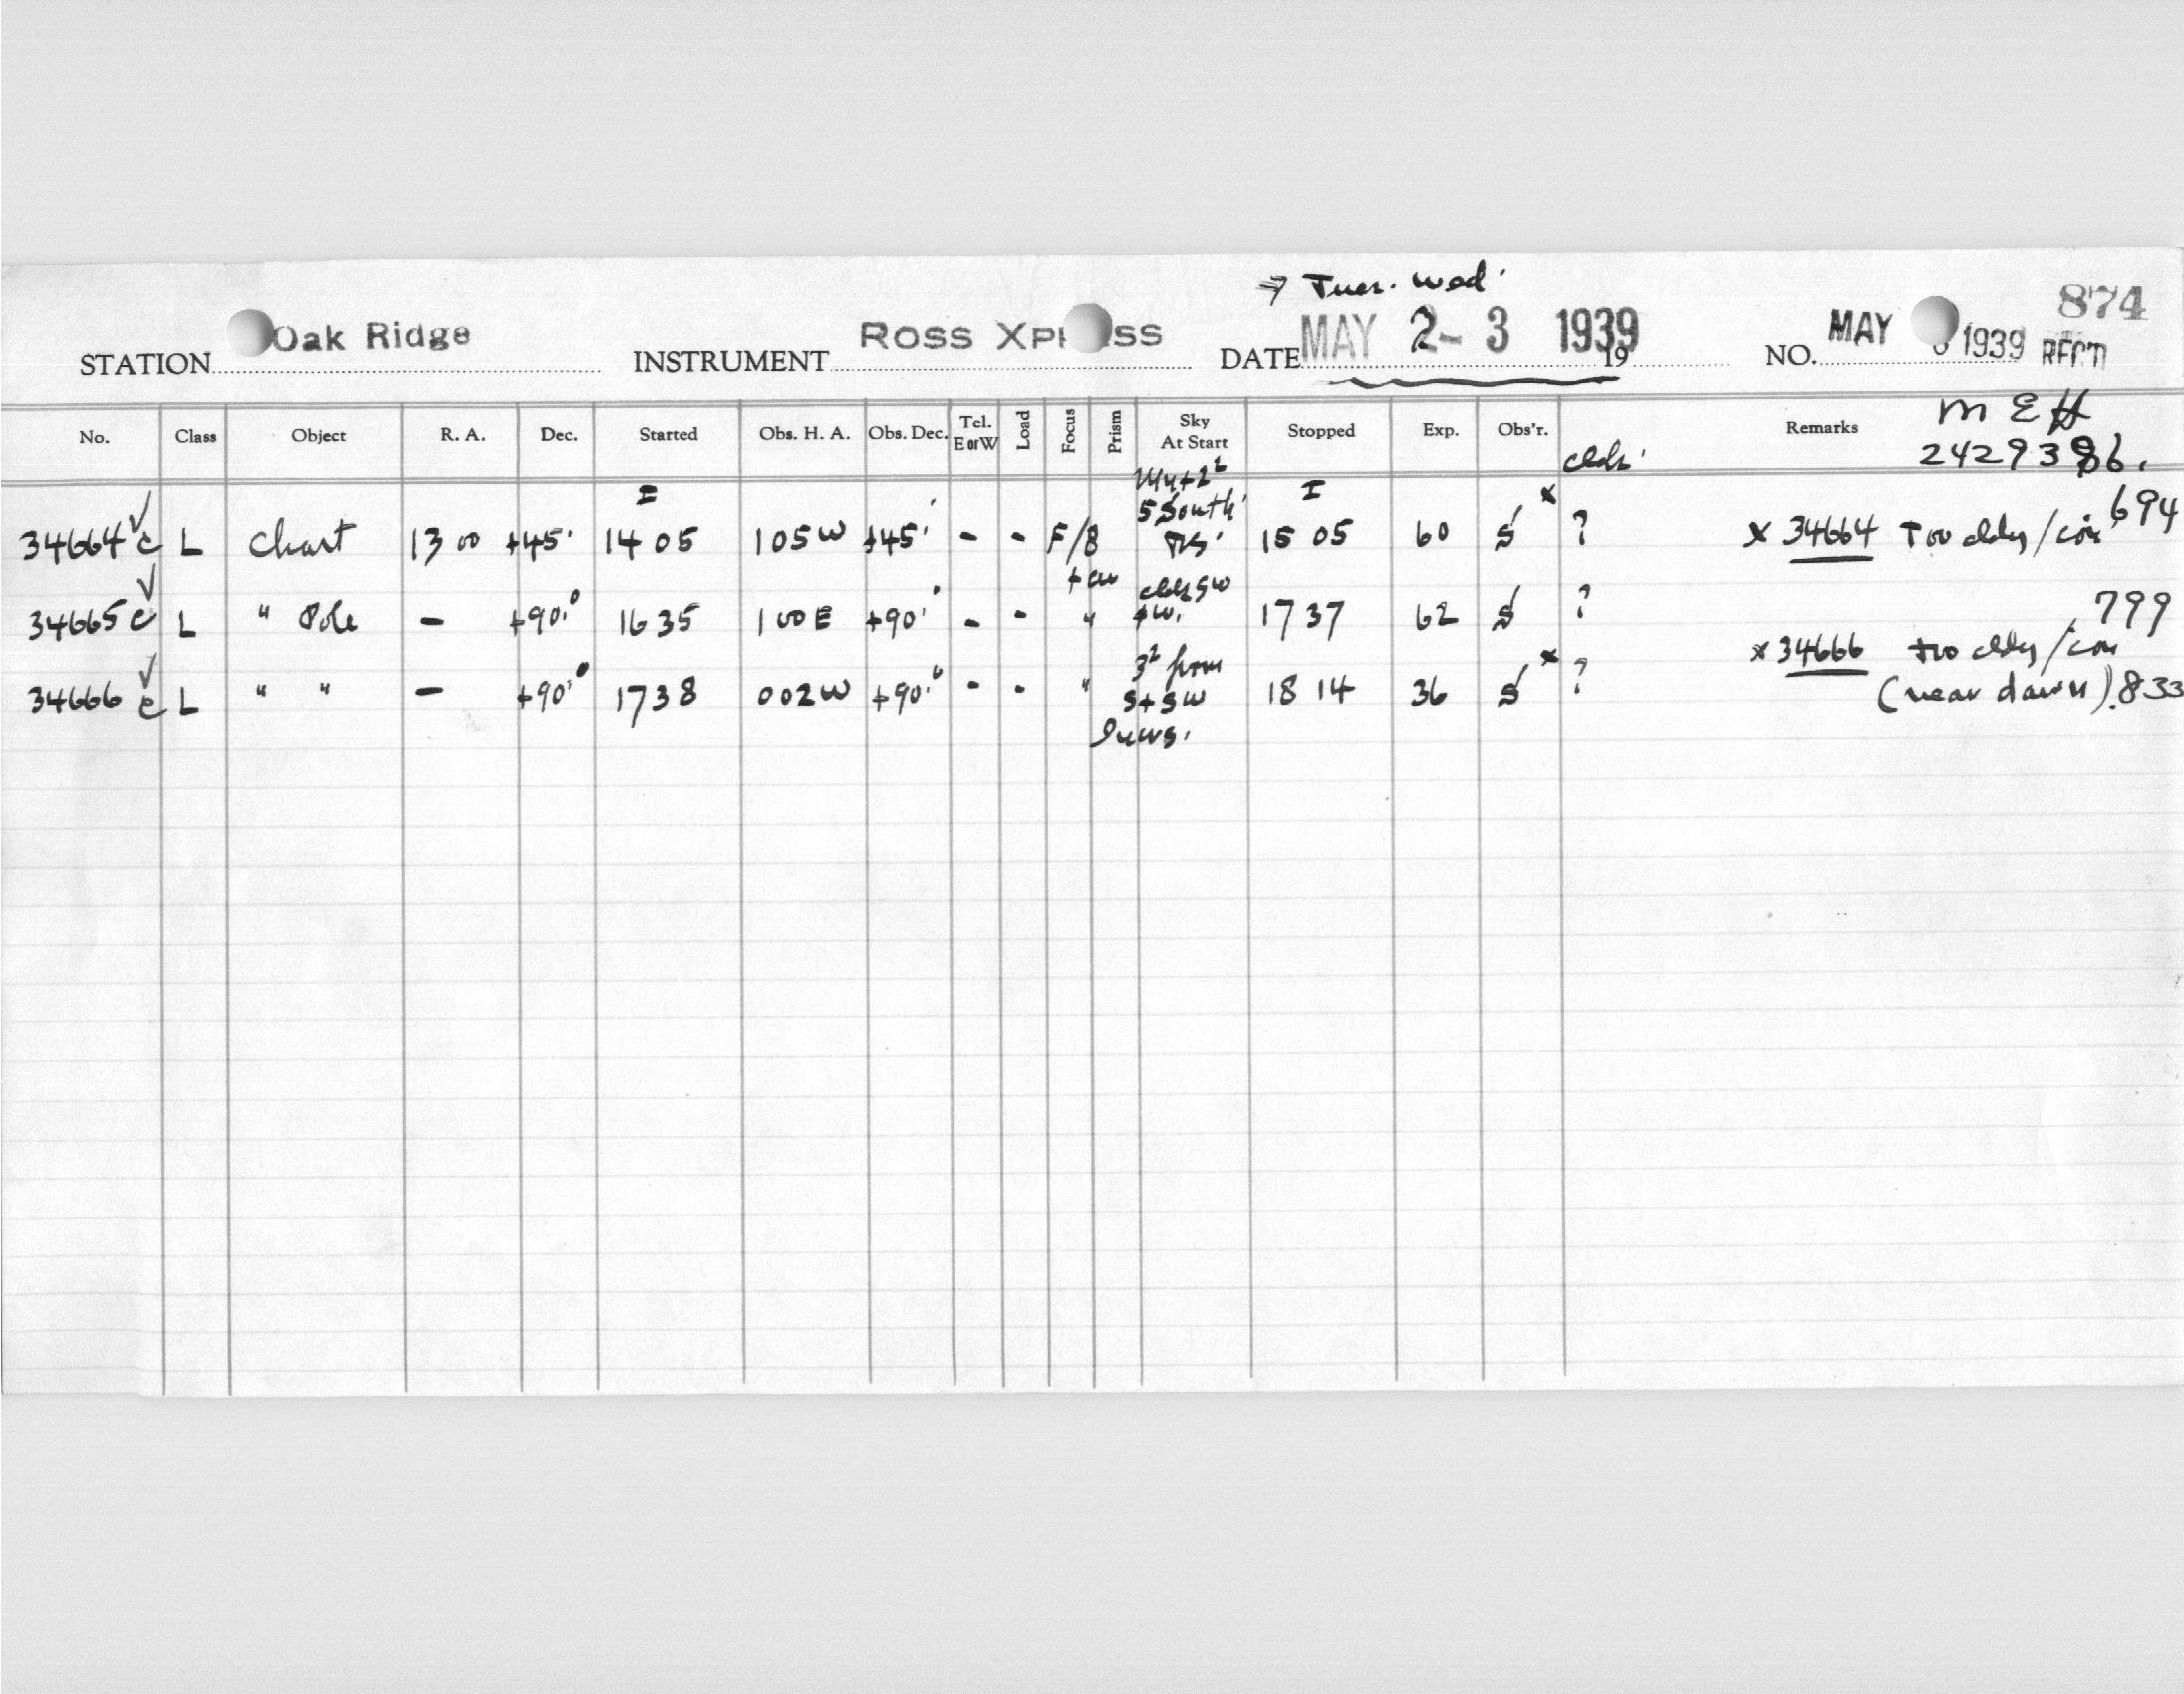 → Tues. Wed.
STATION Oak Ridge INSTRUMENT ROSS XP SS DATE MAY 2-3 1939 19 NO. MAY 1939 RECT 874
M E H
No. Class Object R. A. Dec. Started Obs. H. A. Obs. Dec. Tel. E or W Load Focus Prism Sky At Start Stopped Exp. Obs'r. clds. Remarks 2429386.
34664 c L Chart 13 00 +45° I 14 05 1 05 W +45° - - F/8 South I 15 05 60 S x ? x 34664 Too cldy/ 694
+
34665 c L " Pole - +90° 16 35 1 00 E +90° - - " clds SW + W. 17 37 62 S ? .799
34666 c L " " - +90° 17 38 0 02 W +90° - - " from S + SW 18 14 36 S x ? x 34666 too cldy/
(near dawn) .833